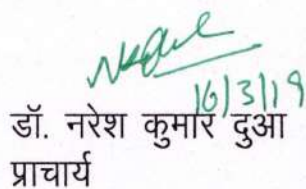 16/3/19
डॉ. नरेश कुमार दुआ
प्राचार्य